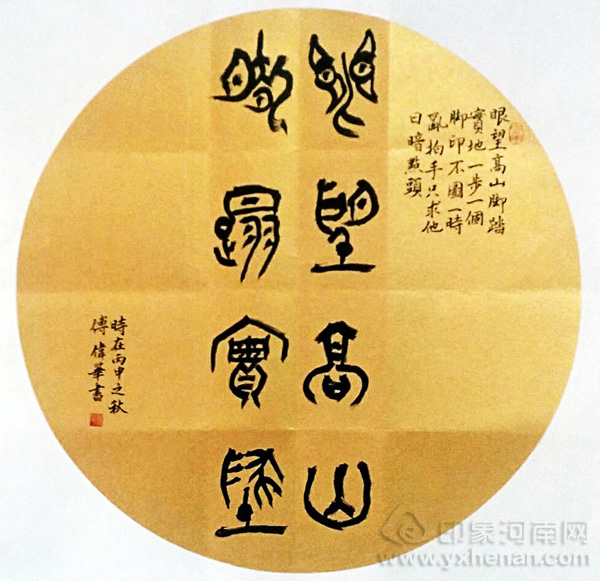 眼望高山脚踏
實地一步一個
脚印不圖一時
亂拍手只求他
日暗點頭
眼望高山
脚踏實地
時在丙申之秋
傅偉華書
印象河南网
www.yxhenan.com